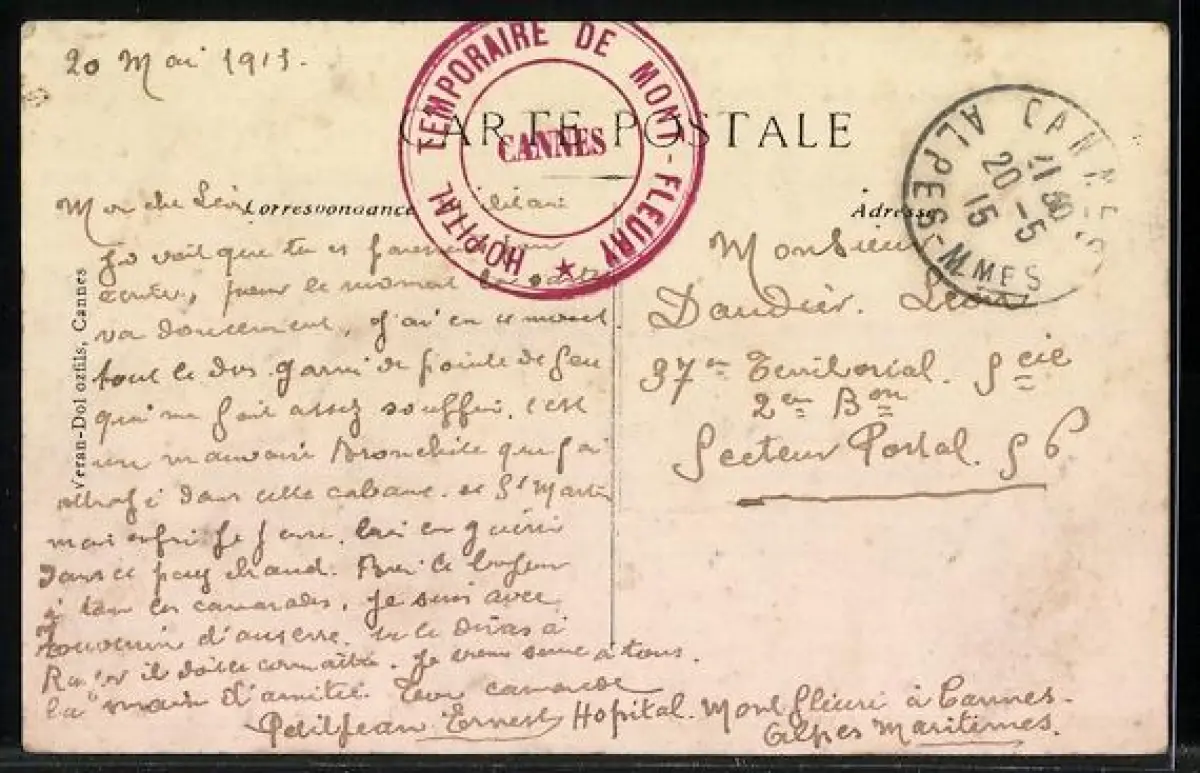 20 Mai 1915.
HOPITAL TEMPORAIRE DE MONT-FLEURY
CANNES
CARTE POSTALE
CANNES
11 30
20-5
15
ALPES-MMES
Correspondance
Adresse
Mon cher Léon
Je voit que tu es
va doucement, j'ai en ce moment
tout le dos garni de pointe de feu
qui me fait assez souffrir, c'est
un mauvaise Bronchite que j'ai
attrapé dans cette cabane de St Martin
mais enfin je pense bien guérir
dans ce pays chaud. le bonjour
à tous les camarades, je suis avec
d'auxerre, tu le diras à
il doit le connaître. Je vous serre à tous
la main d'amitié. Ton camarade
PetitJean Ernest Hopital Mont fleuri à Cannes.
Alpes Maritimes.
Monsieur
Daudier Léon
37em Territorial. 5 cie
2em Bon
Secteur Postal. 56
Veran-Dolozfils, Cannes